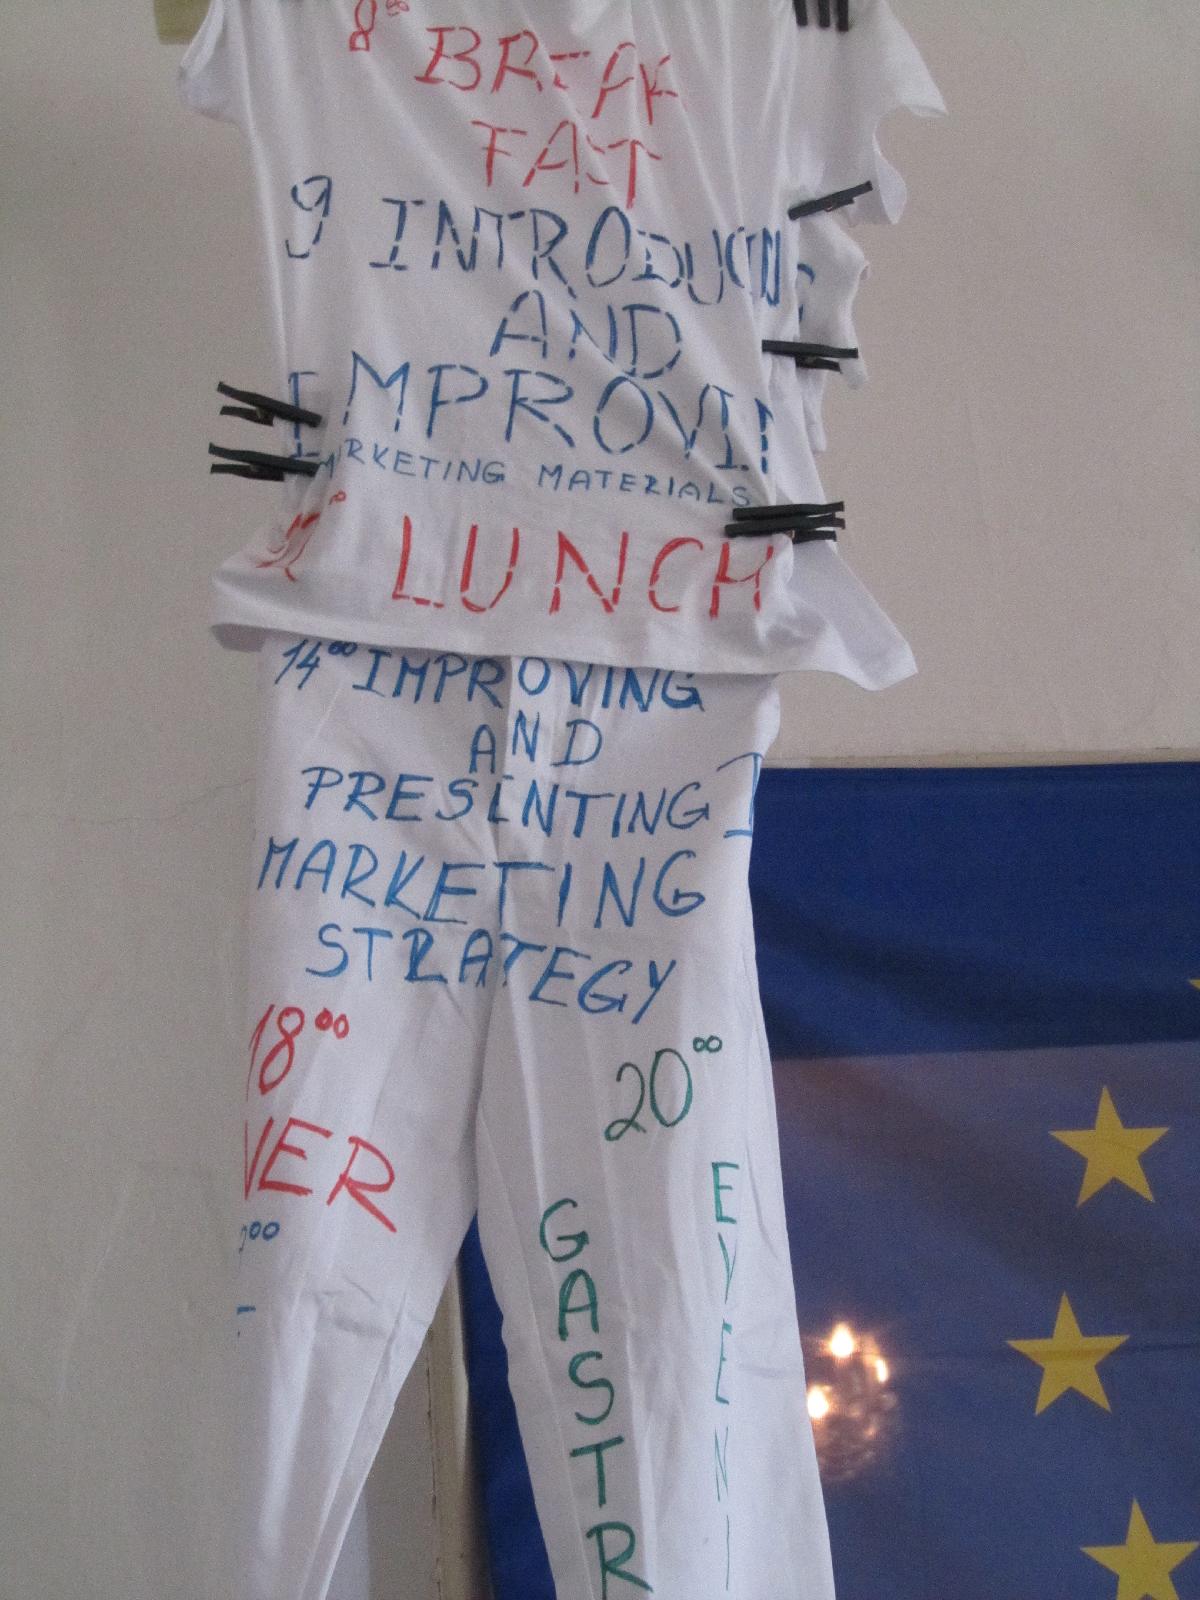 8⁰⁰ BREAK
FAST
9 INTRODUCIN
AND
IMPROVI
MARKETING MATERIALS
LUNCH
14⁰⁰ IMPROVING
AND
PRESENTING
MARKETING
STRATEGY
18⁰⁰
NER
20⁰⁰
GASTR
EVENI